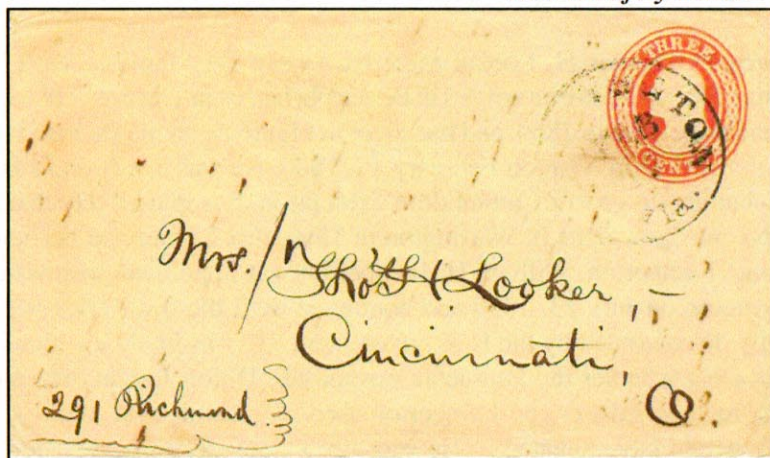 THREE
CENTS
TON
Fla.
Mrs. Tho's H Looker, –
Cincinnati,
O
291 Richmond.